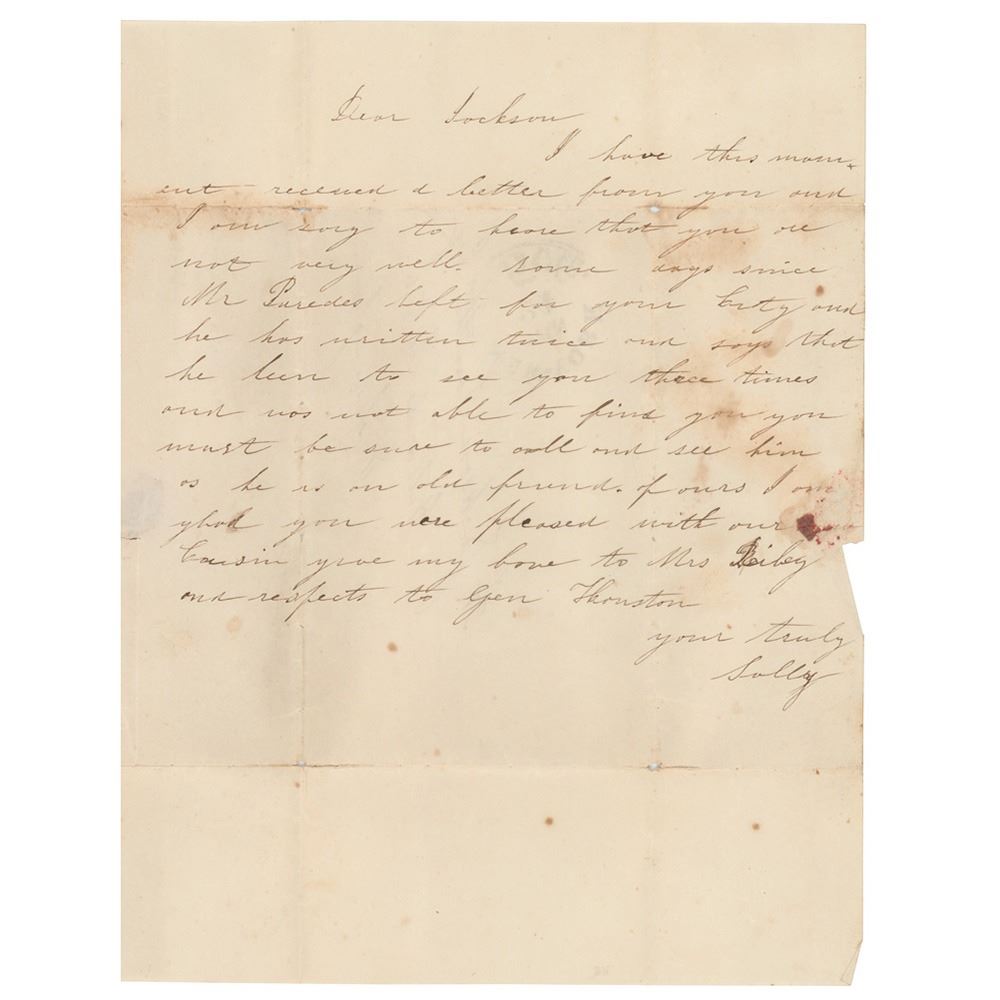 Dear Jackson
I have this mom-
ent received a letter from you and
I am sory to heare that you are
not very well. some days since
Mr Paredes left for your City and
he has written twice and says that
he been to see you three times
and was not able to find you you
must be sure to call and see him
as he is an old friend. of ours I am
glad you were pleased with our
Cousin give my love to Mrs
and respects to Gen Houston
your truly
Sally